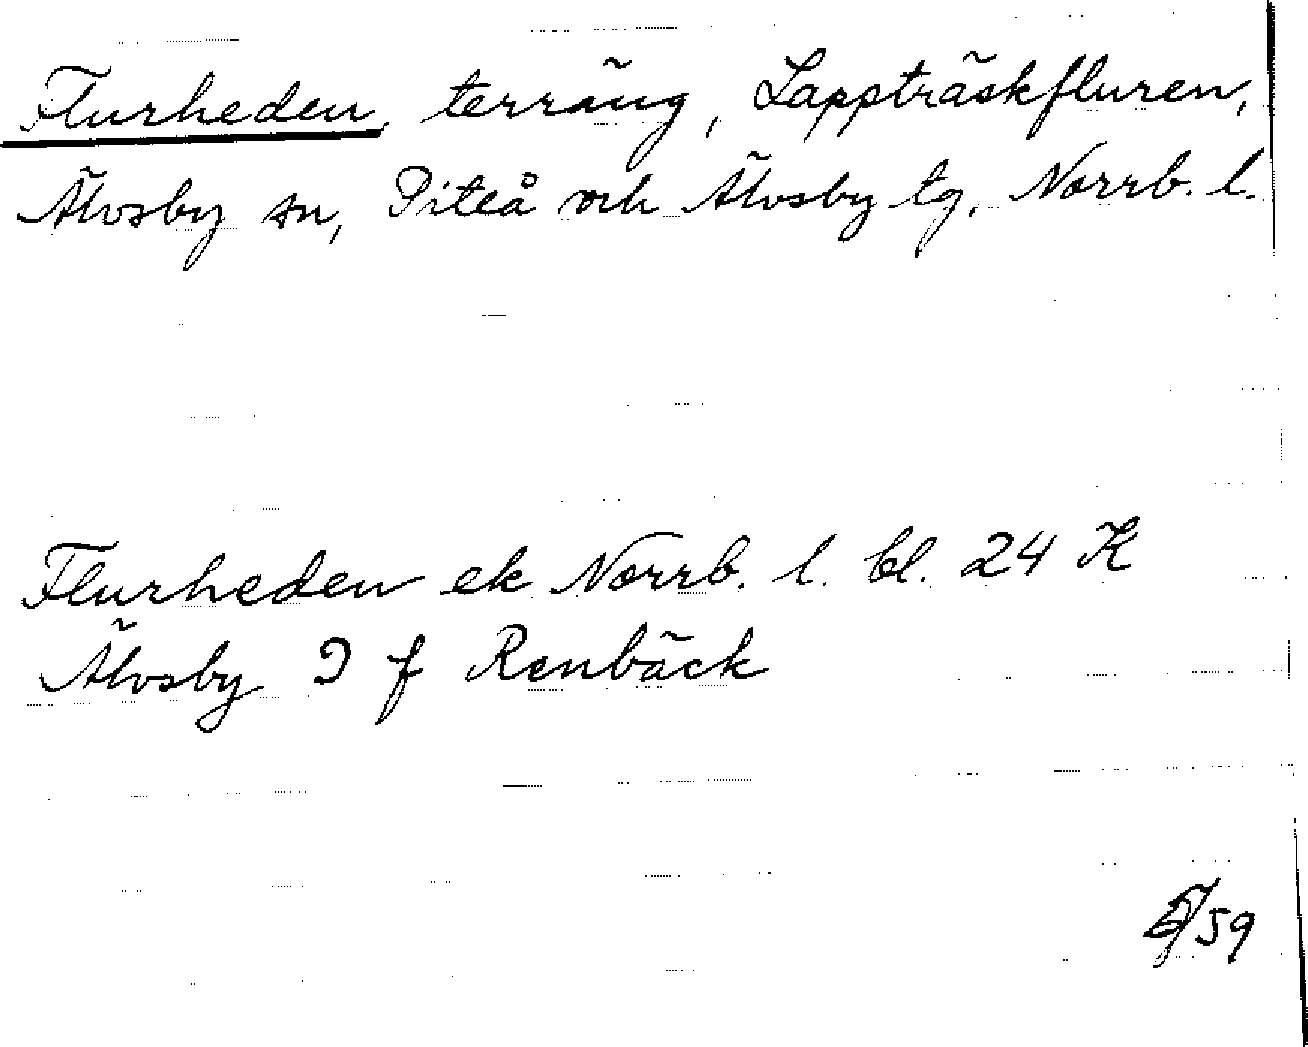 Flurheden, terräng, Lappträskfluren,
Älvsby sn, Piteå och Älvsby tg, Norrb. l.
Flurheden ek Norrb. l. bl. 24 K
Älvsby f Renbäck
/59